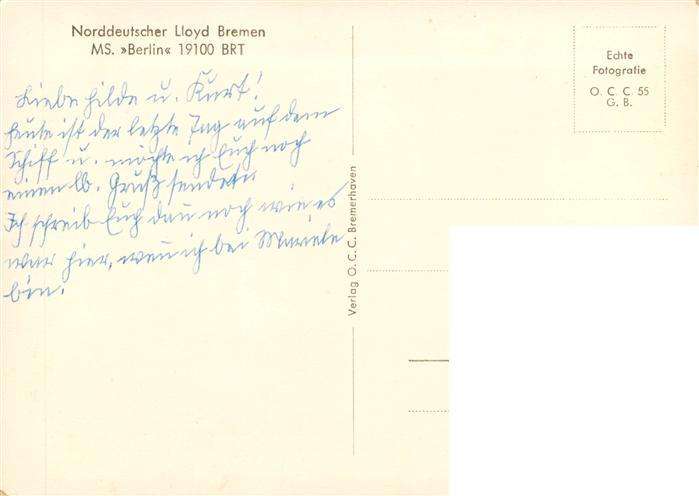 Norddeutscher Lloyd Bremen
MS. »Berlin« 19100 BRT
Liebe Hilde u. Kurt!
heute ist der letzte Tag auf dem
Schiff u. möchte ich Euch noch
einen lb. Gruß senden.
Ich schreib Euch dan noch wie es
war hier, wen ich bei Mariele
bin.
Verlag O. C. C. Bremerhaven
Echte
Fotografie
O. C. C. 55
G. B.